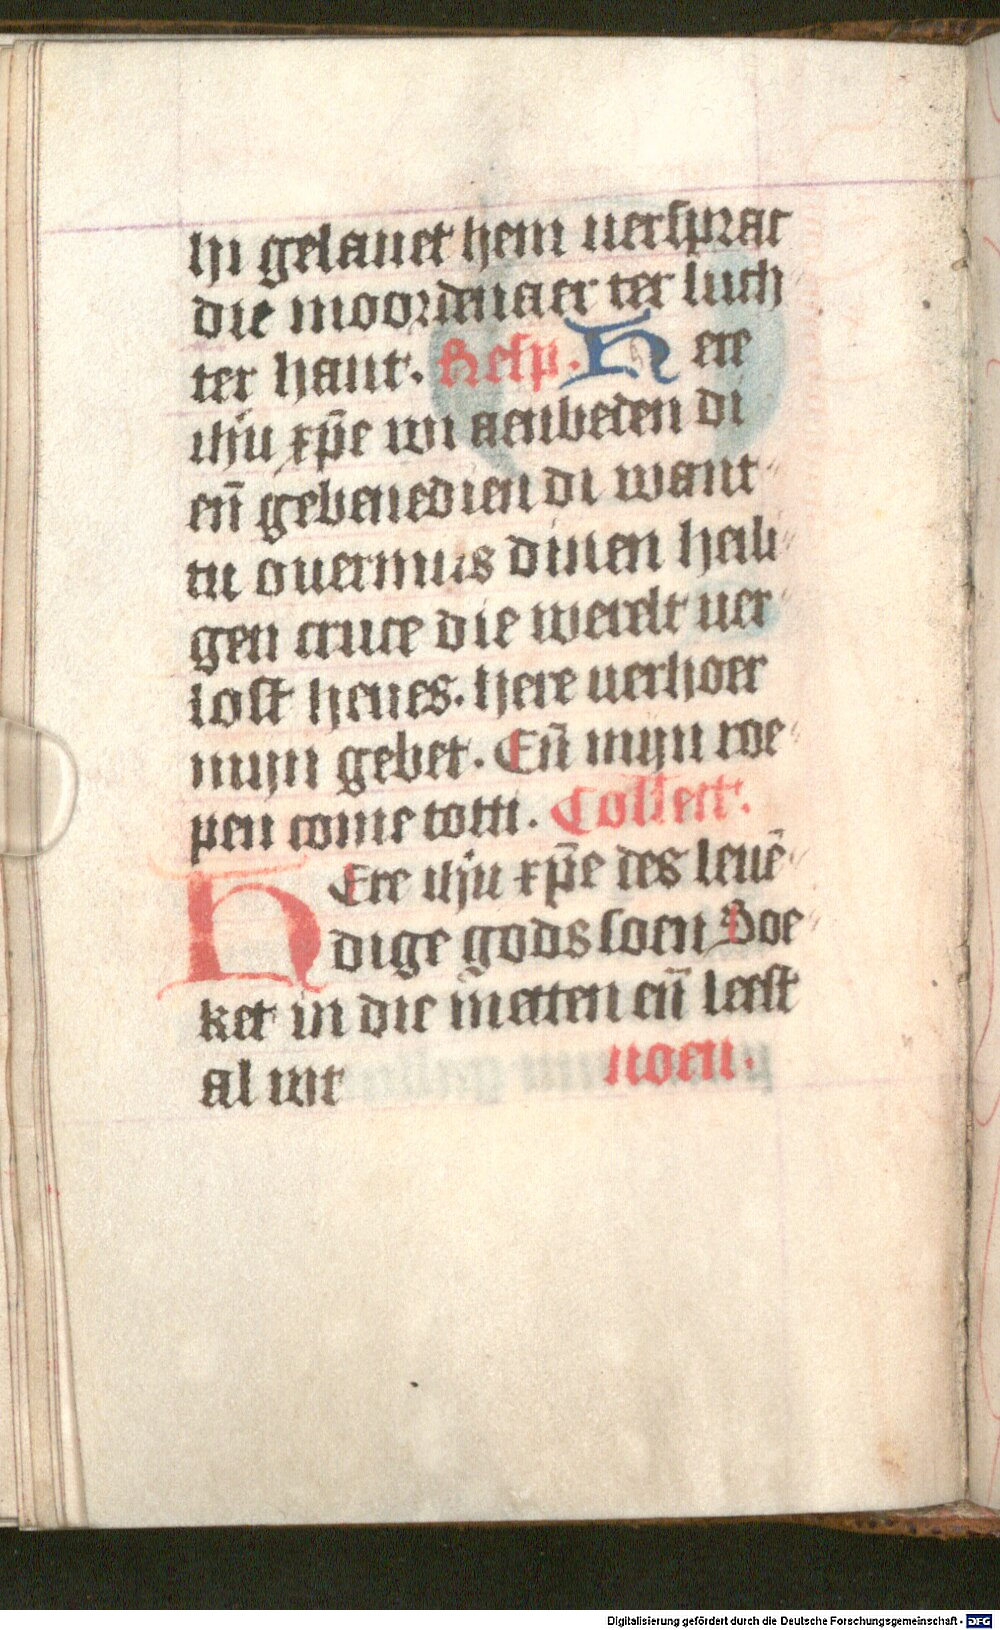 hi gelauet hem uersprac
die moordenaer ter luch
ter hant. Resp. Here
ihu xp̄e wi aenbeden di
en̄ gebenedien di want
tu ouermits dinen heili
gen cruce die werelt uer
lost heues. Here uerhoer
mijn gebet. En̄ mijn roe
pen come totti. Collect.
HEre ihu xp̄e des leuē
dige gods soen Soe
ket in die metten en̄ leest
al wt noen.
Digitalisierung gefördert durch die Deutsche Forschungsgemeinschaft - DFG